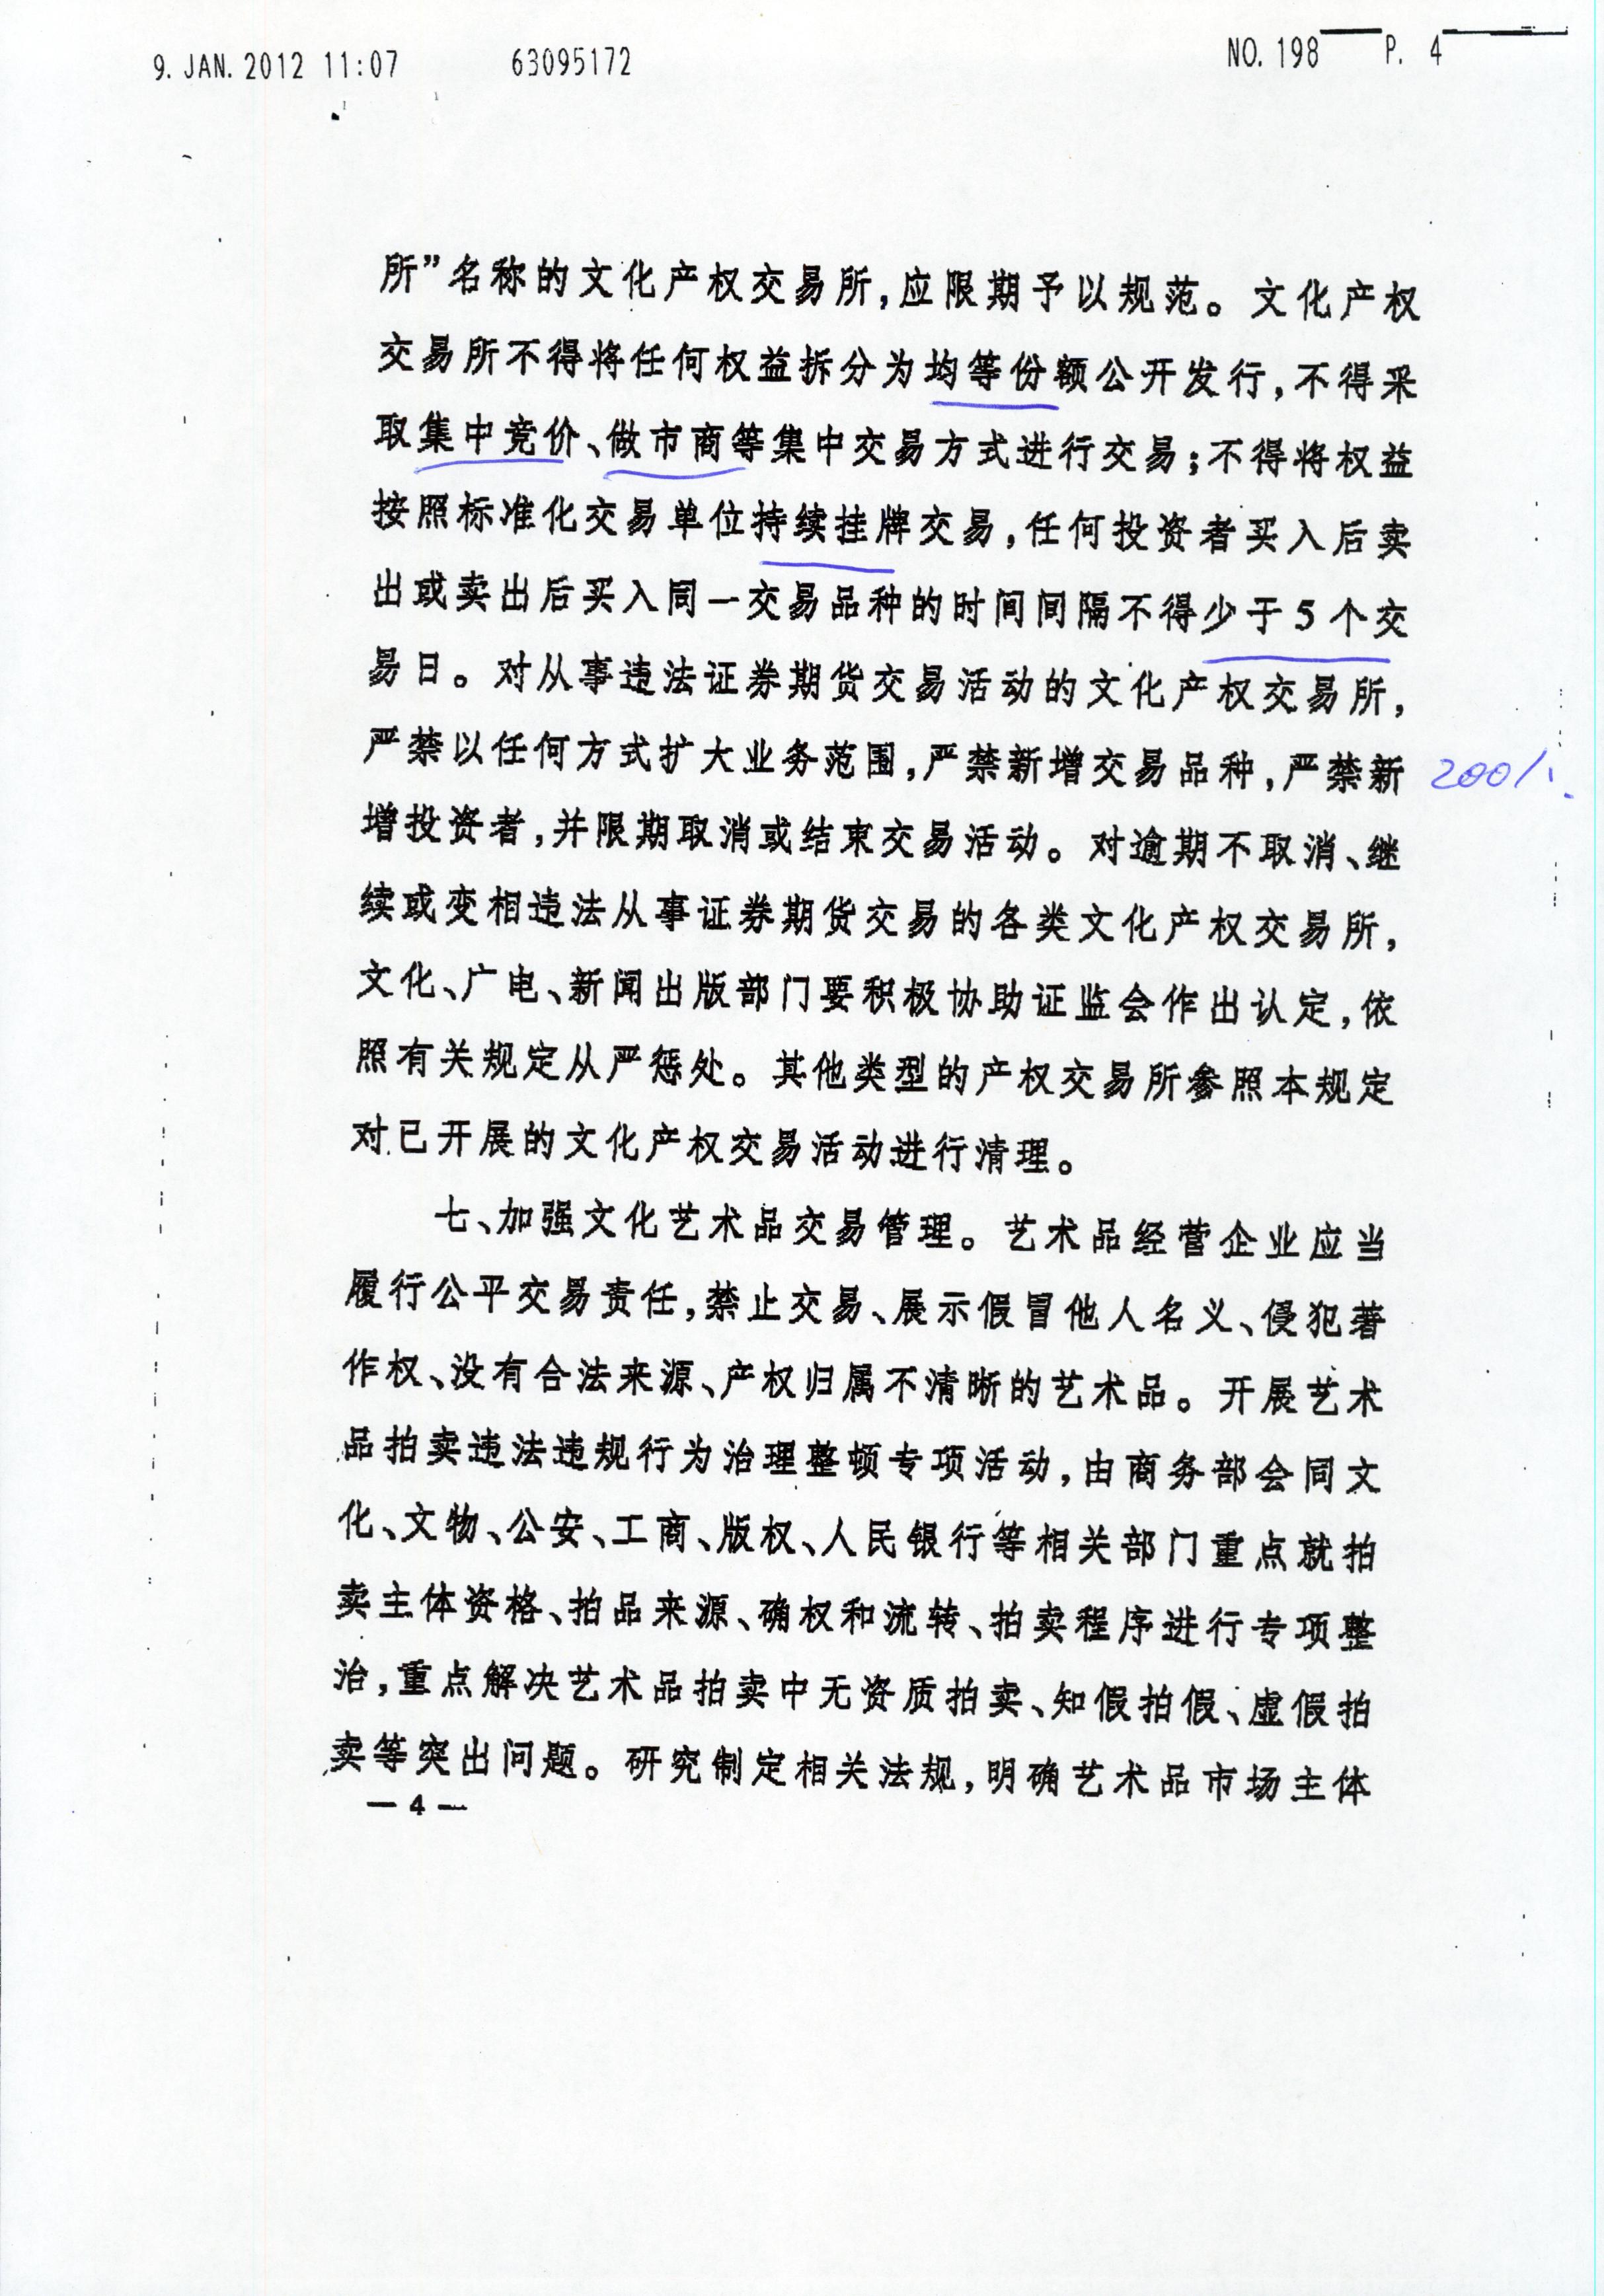 9. JAN. 2012 11:07 63095172 NO. 198 P. 4
所”名称的文化产权交易所,应限期予以规范。文化产权
交易所不得将任何权益拆分为均等份额公开发行,不得采
取集中竞价、做市商等集中交易方式进行交易;不得将权益
按照标准化交易单位持续挂牌交易,任何投资者买入后卖
出或卖出后买入同一交易品种的时间间隔不得少于5个交
易日。对从事违法证券期货交易活动的文化产权交易所,
严禁以任何方式扩大业务范围,严禁新增交易品种,严禁新
增投资者,并限期取消或结束交易活动。对逾期不取消、继
续或变相违法从事证券期货交易的各类文化产权交易所,
文化、广电、新闻出版部门要积极协助证监会作出认定,依
照有关规定从严惩处。其他类型的产权交易所参照本规定
对已开展的文化产权交易活动进行清理。
七、加强文化艺术品交易管理。艺术品经营企业应当
履行公平交易责任,禁止交易、展示假冒他人名义、侵犯著
作权、没有合法来源、产权归属不清晰的艺术品。开展艺术
品拍卖违法违规行为治理整顿专项活动,由商务部会同文
化、文物、公安、工商、版权、人民银行等相关部门重点就拍
卖主体资格、拍品来源、确权和流转、拍卖程序进行专项整
治,重点解决艺术品拍卖中无资质拍卖、知假拍假、虚假拍
卖等突出问题。研究制定相关法规,明确艺术品市场主体
— 4 —